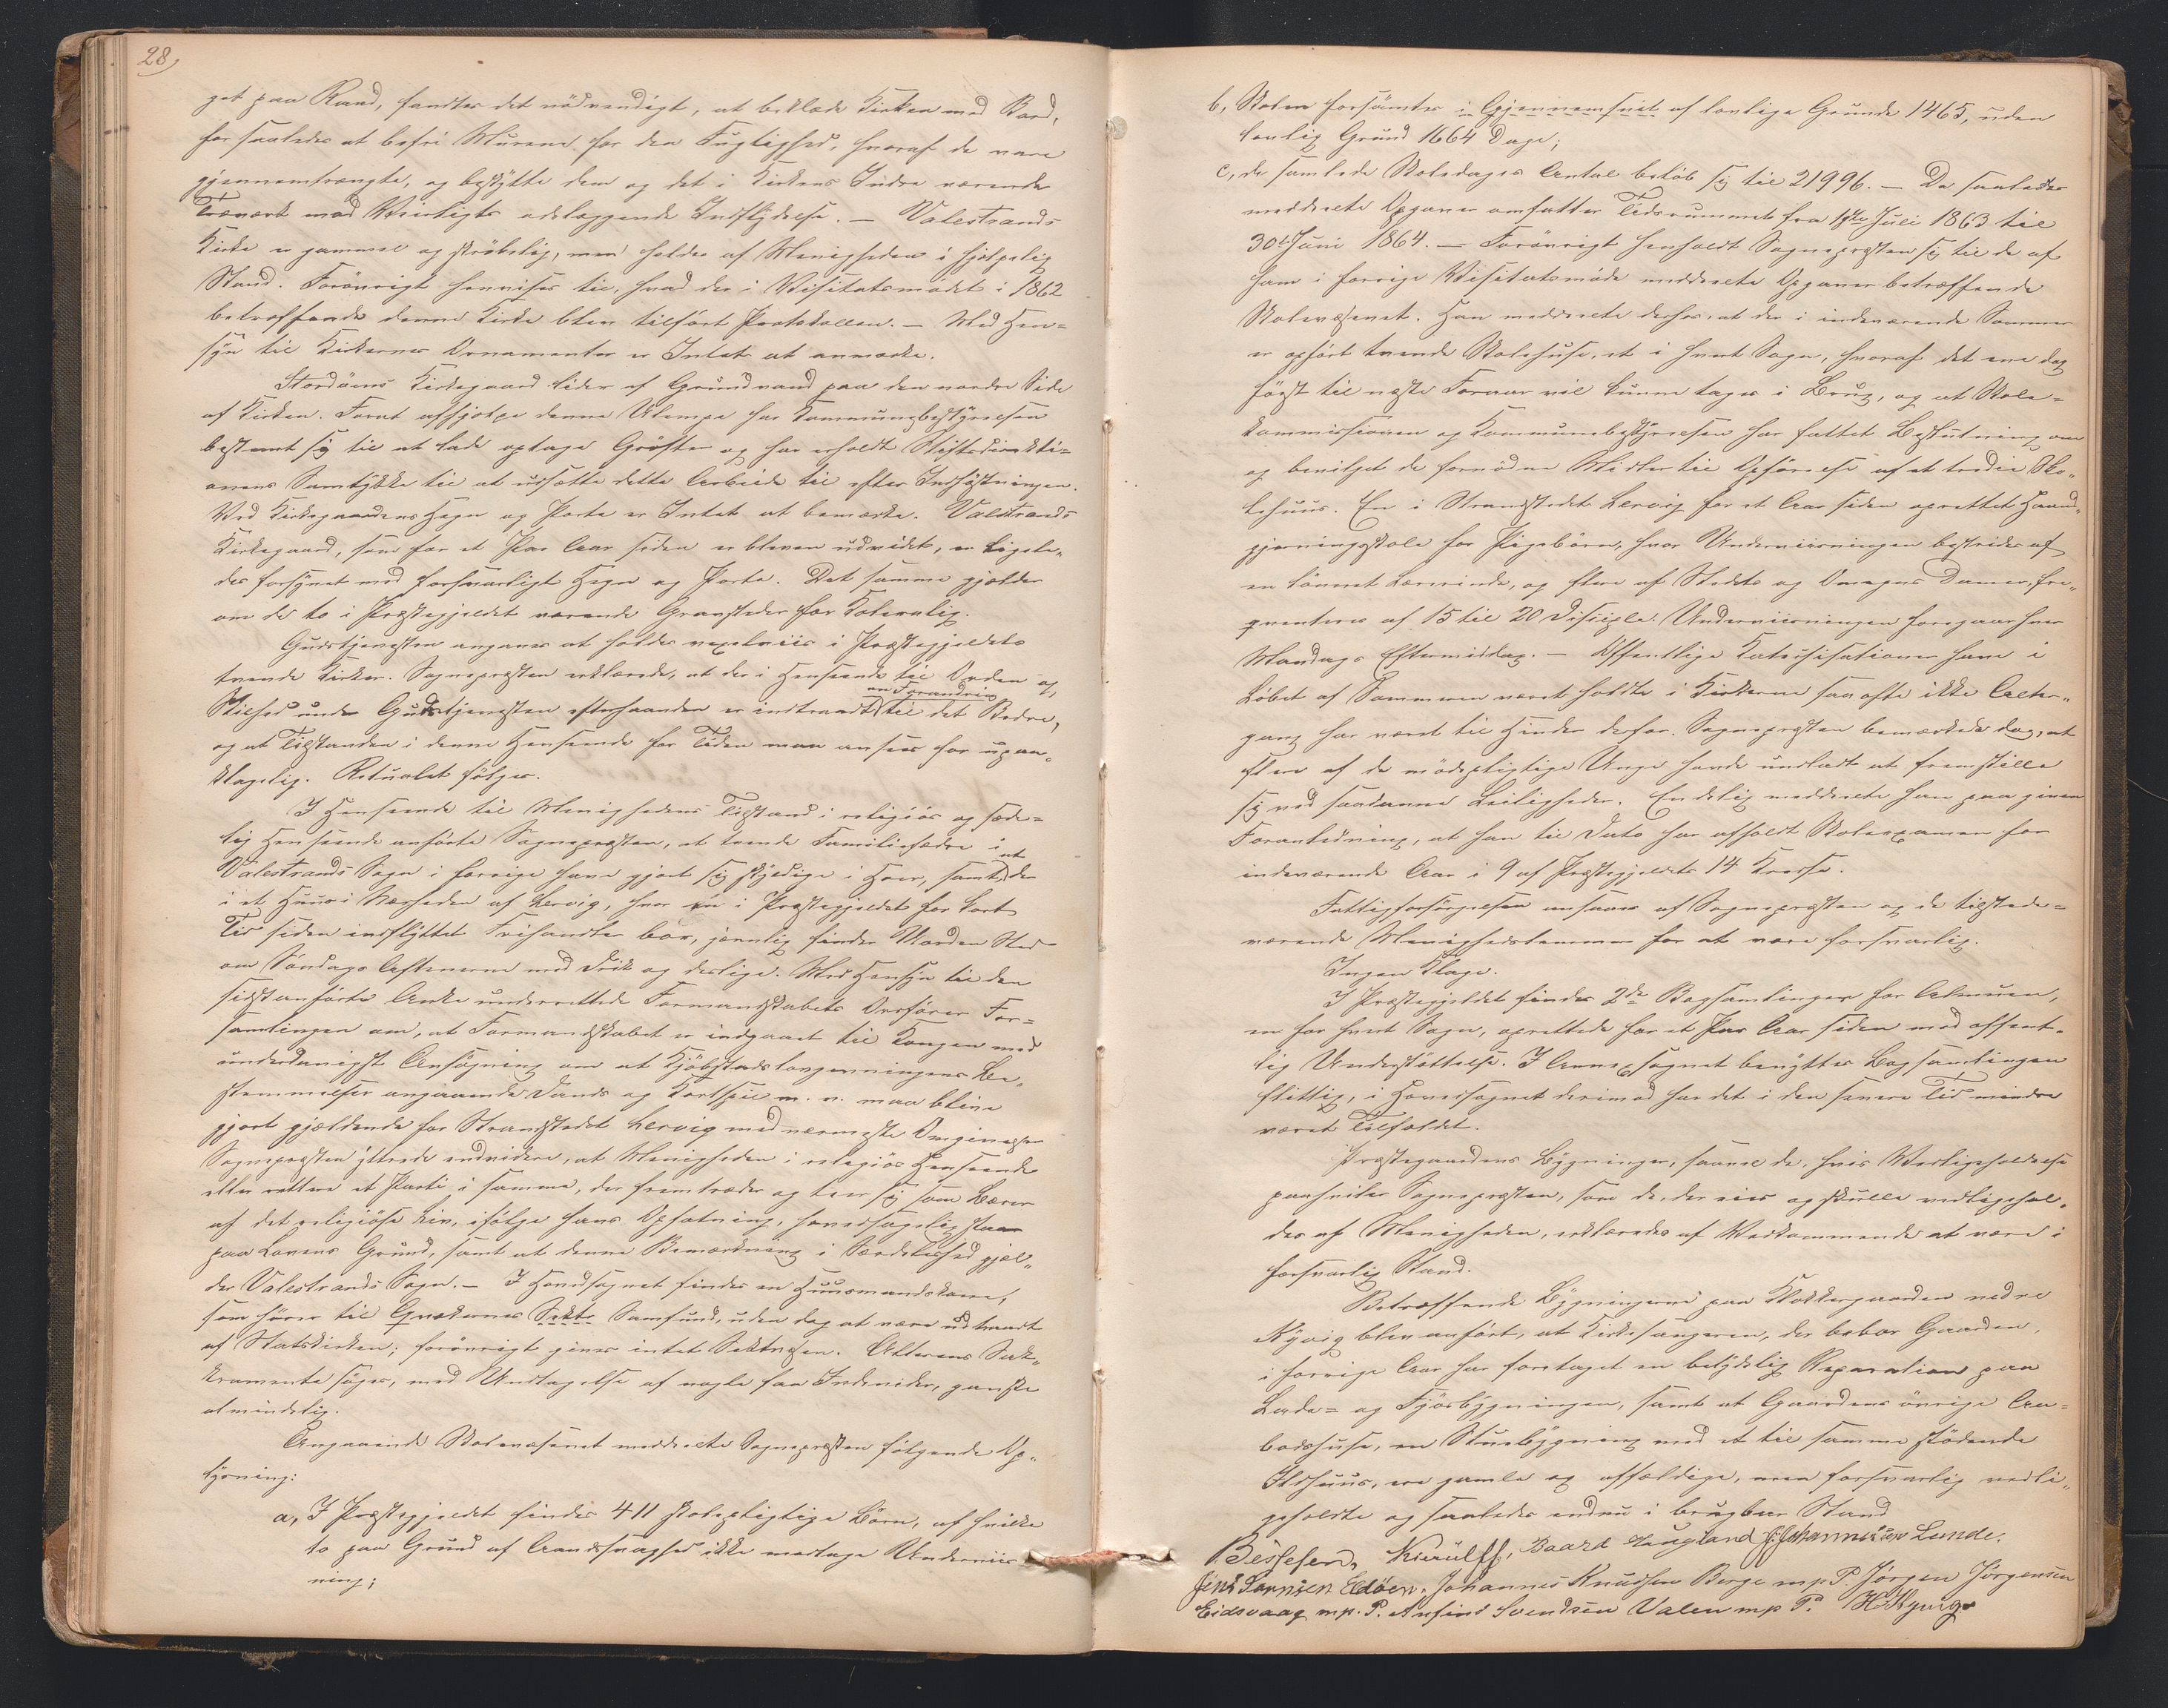 28,
get paa Raad, fandtes det nödvendigt, at beklæde Kirken med Bord,
for saaledes at befri Murene for den Fugtighed, hvoraf de vare
gjennemtrængte, og beskytte dem og det i Kirkens Indre værende
Træværk mod Veirligets ødelæggende Indflydelse. — Valestrands
Kirke er gammel og skröbelig, men holdes af Menigheden i hjelpelig
Stand. Forövrigt henvises til, hvad der i Visitatsmödet i 1862
betræffende denne Kirke blev tilfört Protokollen. — Med Hen=
syn til Kirkernes Ornamenter er Intet at anmærke.
Stordöens Kirkegaard lider af Grundvand paa den nordre Side
af Kirken. Forat afhjelpe denne Ulempe har Kommunebestyrelsen
bestemt sig til at lade optage Gröfter og har erholdt Stiftsdirekti=
onens Samtykke til at udsætte dette Arbeide til efter Indhöstningen.
Ved Kirkegaardens Hegn og Porte er Intet at bemærke. Valestrands
Kirkegaard, som for et Par Aar siden er bleven udvidet, er ligele„
des forsynet med forsvarligt Hegn og Porte. Det samme gjælder
om de to i Præstegjeldet værende Gravsteder for Kolera-lig.
Gudstjenesten angaves at holdes vexelviis i Præstegjeldets
tvende Kirker. Sognepræsten erklærede, at der i Henseende til Orden og
en Forandring
Stilhed under Gudstjenesten efterhaanden er indtraadt til det Bedre,
og at Tilstanden i denne Henseende for Tiden maa ansees for upaa„
klagelig. Ritualet fölges.
I Henseende til Menighedens Tilstand i religiös og sæde=
lig Henseende anförte Sognepræsten, at tvende Familiefædre i
at
Valestrands Sogn i forrige have gjort sig skyldige i Hoer, samt der
i et Huus i Nærheden af Lervig, hvor en i Præstegjeldet for kort
Tid siden indflyttet Frihandler bor, jevnlig finder Uorden Sted
om Söndags Aftenerne med Drik og deslige. Med Hensyn til den
sidst anförte Anke underrettede Formandskabets Ordförer For=
samlingen om, at Formandskabet er indgaaet til Kongen med
underdanigst Ansögning om at Kjöbstadslovgivningens Be„
stemmelser angaaende Dands og Kortspil m. v. maa blive
gjort gjældende for Strandstedet Lervig med nærmeste Omgivelser
Sognepræsten yttrede endvidere, at Menigheden i religiös Henseende
eller rettere et Parti i samme, der fremtræder og teer sig som Bærer
af det religiöse Liv, ifölge hans Opfatning, hovedsagelig staar
paa Lovens Grund, samt at denne Bemærkning i Særdeleshed gjæl„
der Valestrands Sogn. — I Hovedsognet findes en Huusmandskone,
som hörer til Qvækernes Sekte Samfund, uden dog at være udtraadt
af Statskirken; forövrigt gives intet Sektvæsen. Alterens Sak„
kramente söges, med Undtagelse af nogle faa Individer, ganske
almindelig.
Angaaende Skolevæsenet meddeelte Sognepræsten fölgende Op„
lysning:
a, I Præstegjeldet findes 411 skolepligtige Börn, af hvilke
to paa Grund af Aandssvaghed ikke modtage Underviis
ning;
b, Skolen forsömtes i Gjennemsnit af lovlige Grunde 1465, uden
lovlig Grund 1664 Dage;
c, de samlede Skoledages Antal belöb sig til 21996. — De saaledes
meddeelte Opgaver omfatter Tidsrummet fra 1ste Juli 1863 til
30te Juni 1864. — Forövrigt henholdt Sognepræsten sig til de af
ham i forrige Visitatsmöde meddeelte Opgaver betræffende
Skolevæsenet. Han meddeelte derhos, at der i indeværende Sommer
er opfört tvende Skolehuse, et i hvert Sogn, hvoraf det ene dog
först til næste Foraar vil kunne tages i Brug, og at Skole=
kommissionen og Kommunebestyrelsen har fattet Beslutning om
og bevilget de fornödne Midler til Opförelse af et tredie Sko„
lehuus. En i Strandstedet Lervig for et Aar siden oprettet Haand„
gjerningsskole for Pigebörn, hvor Underviisningen bestrides af
en lönnet Lærerinde, og flere af Stedets og Omegnens Damer, fre„
qventeres af 15 til 20 Disciple. Underviisningen foregaar hver
Mandags Eftermiddag. — Offentlige Katechisationer have i
Löbet af Sommeren været holdte i Kirkerne saa ofte ikke Alter„
gang har været til Hinder derfor. Sognepræsten bemærkede dog, at
flere af de mödepligtige Unge havde undladt at fremstille
sig ved saadanne Leiligheder. Endelig meddeelte han paa given
Foranledning, at han til Dato har afholdt Skoleexamen for
indeværende Aar i 9 af Præstegjeldets 14 Kredse.
Fattigforsörgelsen ansaaes af Sognepræsten og de tilstede=
værende Menighedslemmer for at være forsvarlig.
Ingen Klage.
I Præstegjeldet findes 2de Bogsamlinger for Almuen,
en for hvert Sogn, oprettede for et Par Aar siden med offent„
lig Understöttelse. I Annexsognet benyttes Bogsamlingen
flittig, i Hovedsognet derimod har det i den senere Tid mindre
været Tilfældet.
Præstegaardens Bygninger, saavel de, hvis Vedligeholdelse
paahviler Sognepræsten, som de, der eies og skulle vedligehol„
des af Menigheden, erklæredes af Vedkommende at være i
forsvarlig Stand.
Betræffende Bygningerne paa Klokkergaarden nedre
Kyvig blev anfört, at Kirkesangeren, der bebor Gaarden,
i forrige Aar har foretaget en betydelig Reparation paa
Lade= og Fjösbygningen, samt at Gaardens övrige Aa=
bodshuse, en Stuebygning med et til samme stödende
Ildhuus, ere gamle og affældige, men forsvarlig vedli„
geholdte og saaledes endnu i brugbar Stand
Kierülff, Baard Haugland Johannessen Lunde.
Jens Larnsen Eldöen. Johannes Knudsen Berge mp P. Jörgen Jörgensen
Eidsvaag mp. P. Anfind Svendsen Valen mp P. H Kyvig